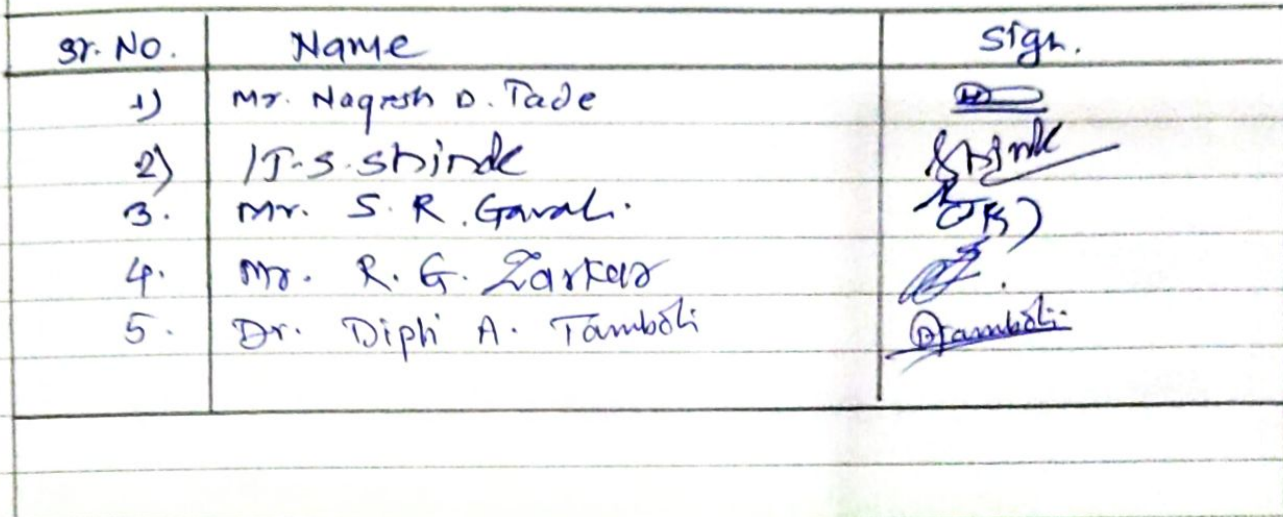 Sr. No. Name Sign.
1) Mr. Nagesh D. Tade
2) J.S. Shinde Shinde
3. Mr. S. R. Gavali.
4. Mr. R. G. Zarkar
5. Dr. Dipti A. Tamboli DTamboli